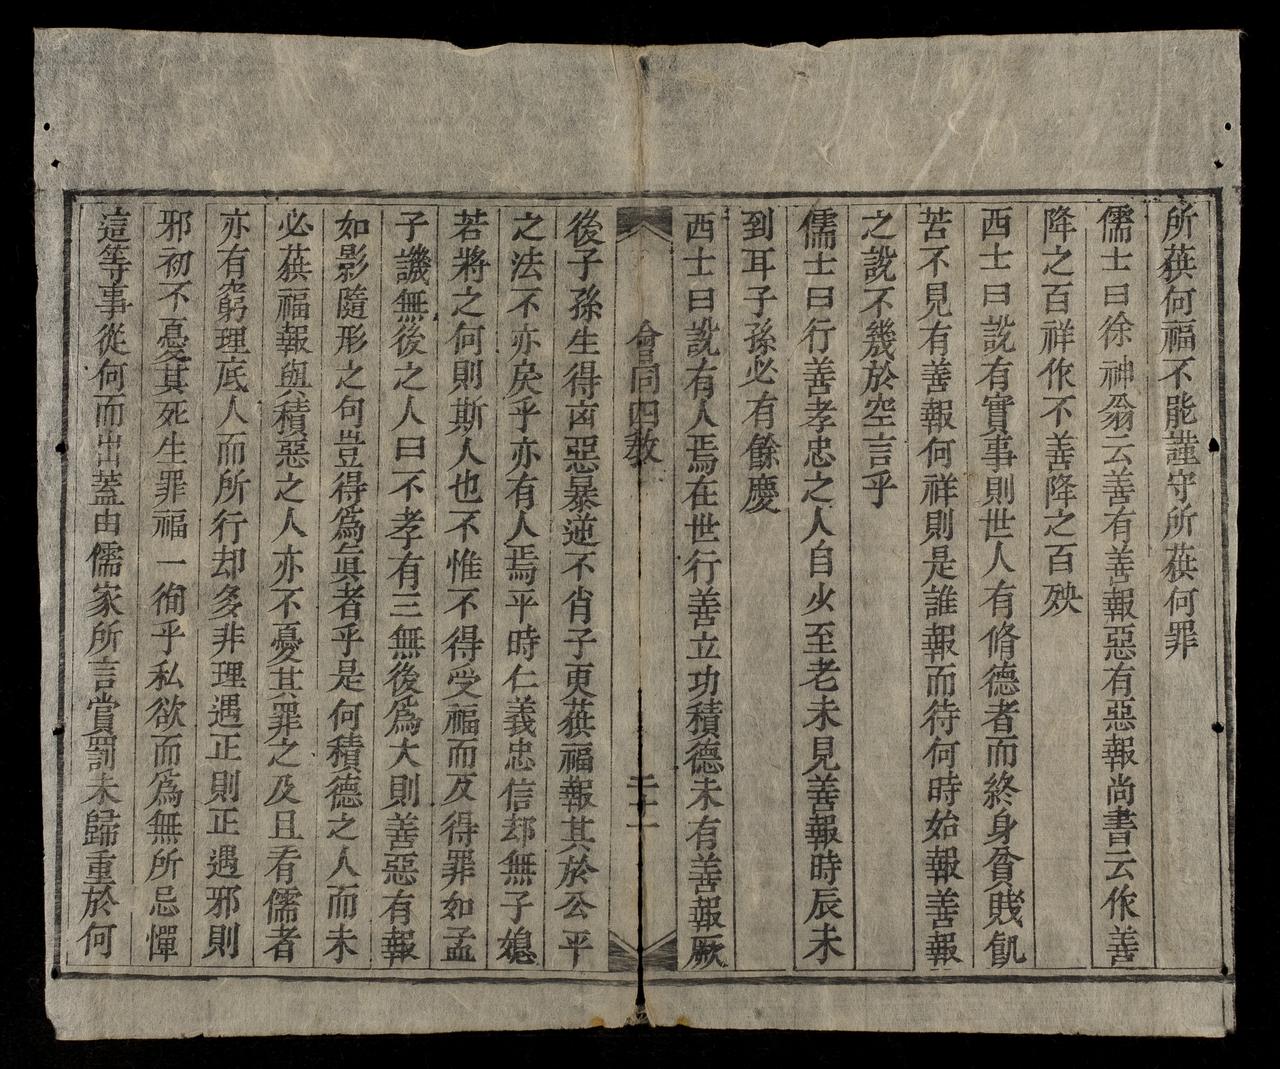 所獲何福不能謹守所獲何罪
儒士曰徐神翁云善有善報惡有惡報尚書云作善
降之百祥作不善降之百殃
西士曰說有實事則世人有脩德者而終身貧賤飢
苦不見有善報何祥則是誰報而待何時始報善報
之說不幾於空言乎
儒士曰行善孝忠之人自少至老未見善報時辰未
到耳子孫必有餘慶
西士曰說有人焉在世行善立功積德未有善報厥
會同四教
二十一
後子孫生得凶惡暴逆不肖子更獲福報其於公平
之法不亦戾乎亦有人焉平時仁義忠信却無子媳
若將之何則斯人也不惟不得受福而反得罪如孟
子譏無後之人曰不孝有三無後爲大則善惡有報
如影隨形之句豈得爲眞者乎是何積德之人而未
必獲福報與積惡之人亦不憂其罪之及且看儒者
亦有窮理底人而所行却多非理遇正則正遇邪則
邪初不憂其死生罪福一徇乎私欲而爲無所忌憚
這等事從何而出蓋由儒家所言賞罰未歸重於何